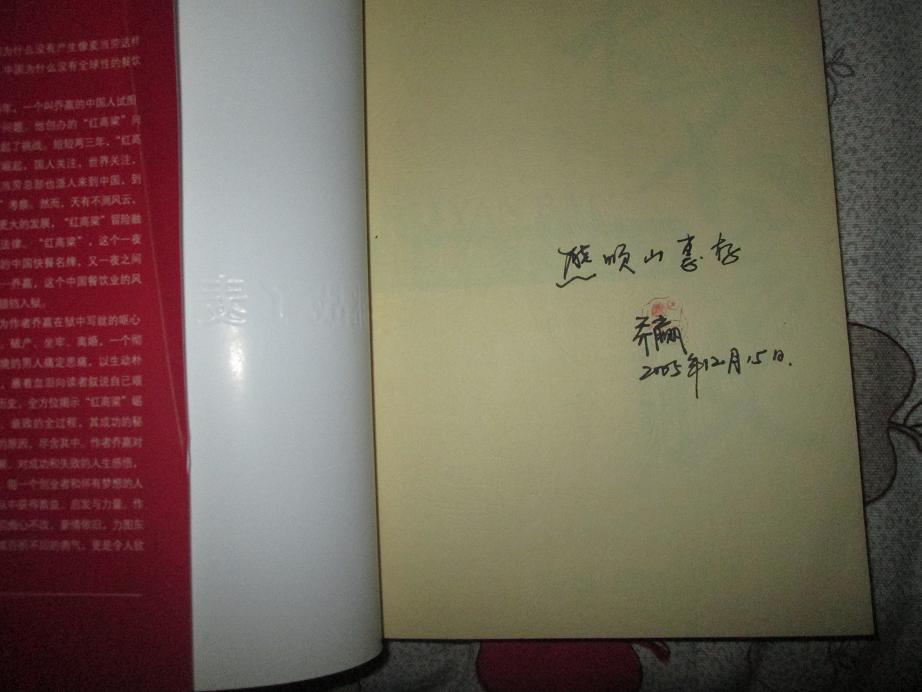 为什么没有产生像麦当劳这样
中国为什么没有全球性的餐饮
年，一个叫乔赢的中国人试图
问题。他创办的“红高粱”向
起了挑战。短短两三年，“红高
崛起，国人关注，世界关注，
当劳总部也派人来到中国，到
”考察。然而，天有不测风云，
更大的发展，“红高粱”冒险融
法律。“红高粱”，这个一夜
的中国快餐名牌，又一夜之间
乔赢，这个中国餐饮业的风
锒铛入狱。
为作者乔赢在狱中写就的呕心
、破产、坐牢、离婚，一个彻
烧的男人痛定思痛，以生动朴
，蘸着血泪向读者叙说自己艰
历史，全方位揭示“红高粱”崛
、衰败的全过程，其成功的秘
的原因，尽含其中。作者乔赢对
，对成功和失败的人生感悟，
每一个创业者和怀有梦想的人
从中获得教益、启发与力量。作
痴心不改，豪情依旧，力图东
百折不回的勇气，更是令人钦
熊顺山惠存
乔赢
2005年12月15日.